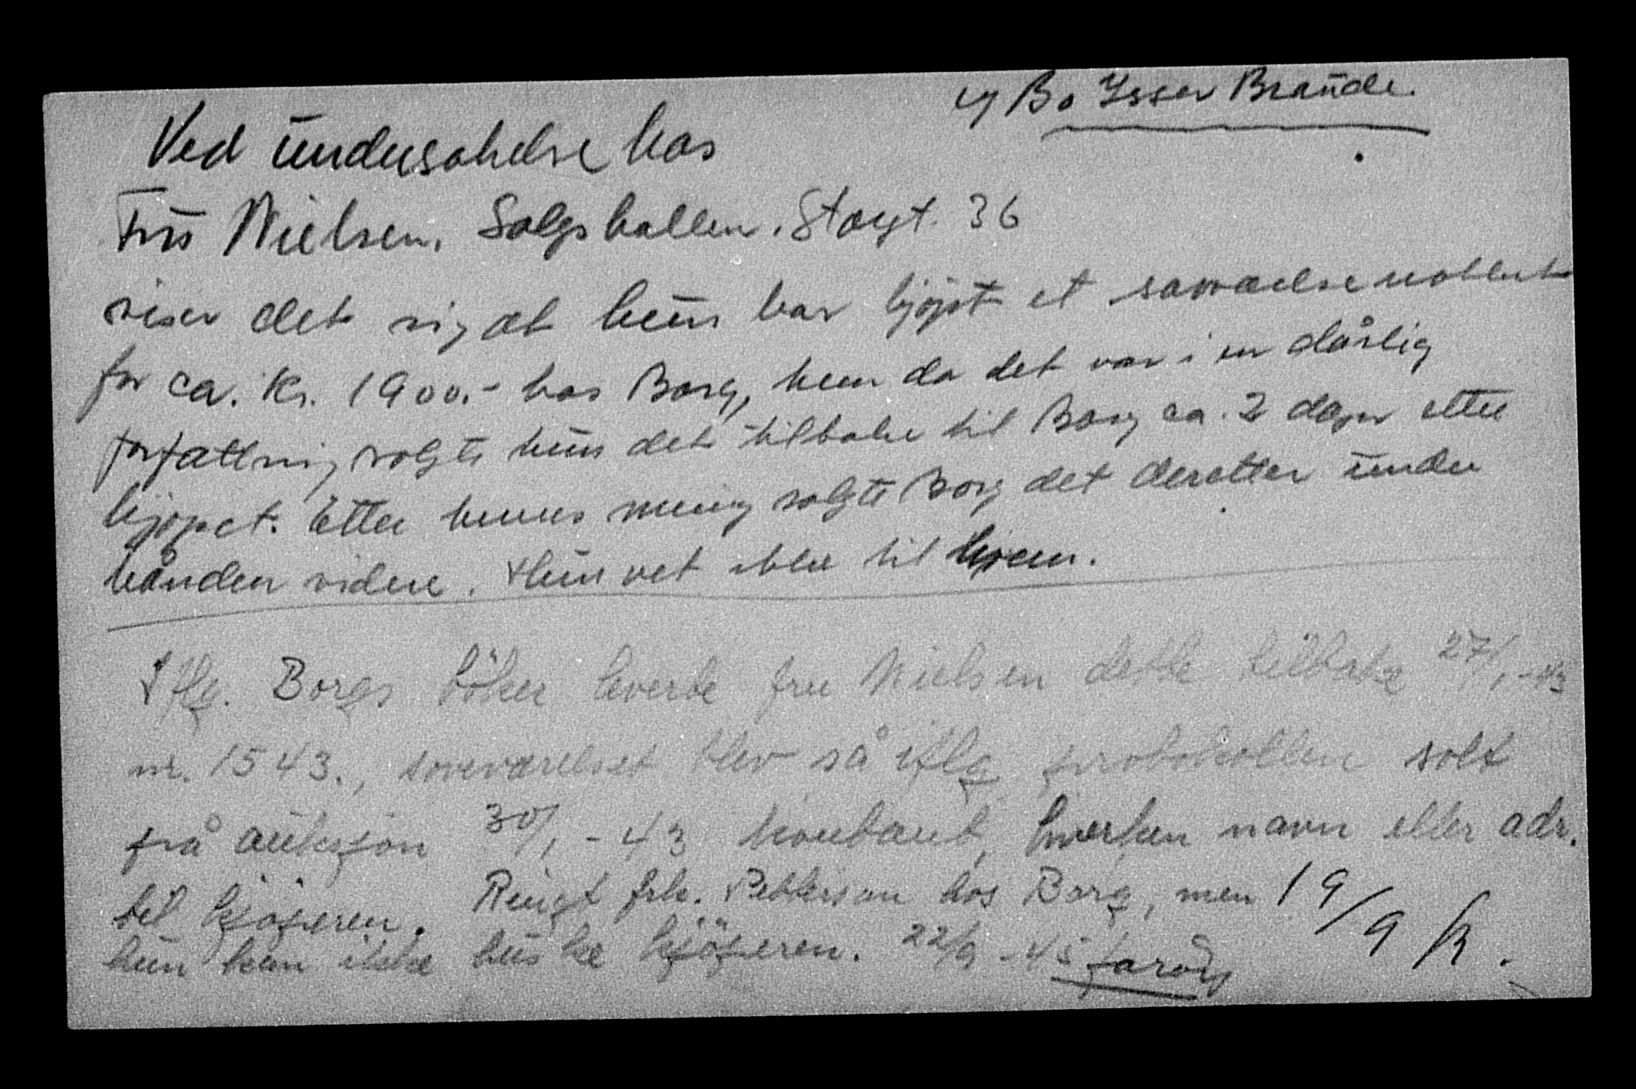 Bo Isser Braude.
Ved undersøkelse hos
Fru Nielsen, Salgshallen. Storgt. 36
viser det sig at hun har kjøpt et soveværelse
for ca. Kr. 1900.- hos Borg, men da det var i en dårlig
forfatning solgte hun det tilbake til Borg ca. 2 dager etter
kjøpet. Etter hennes mening solgte Borg det deretter under
hånden videre. Hun vet ikke til hvem.
Iflg. Borgs böker leverte fru Nielsen dette tilbake 27/1-43
nr. 1543., soveværelset blev så iflg. protokollen solt
på auksjon 30/1-43 kontant, hverken navn eller adr.
til kjöperen. Ringt frk. Pettersen hos Borg, men 19/9
hun kan ikke huske kjöperen. 22/9-45